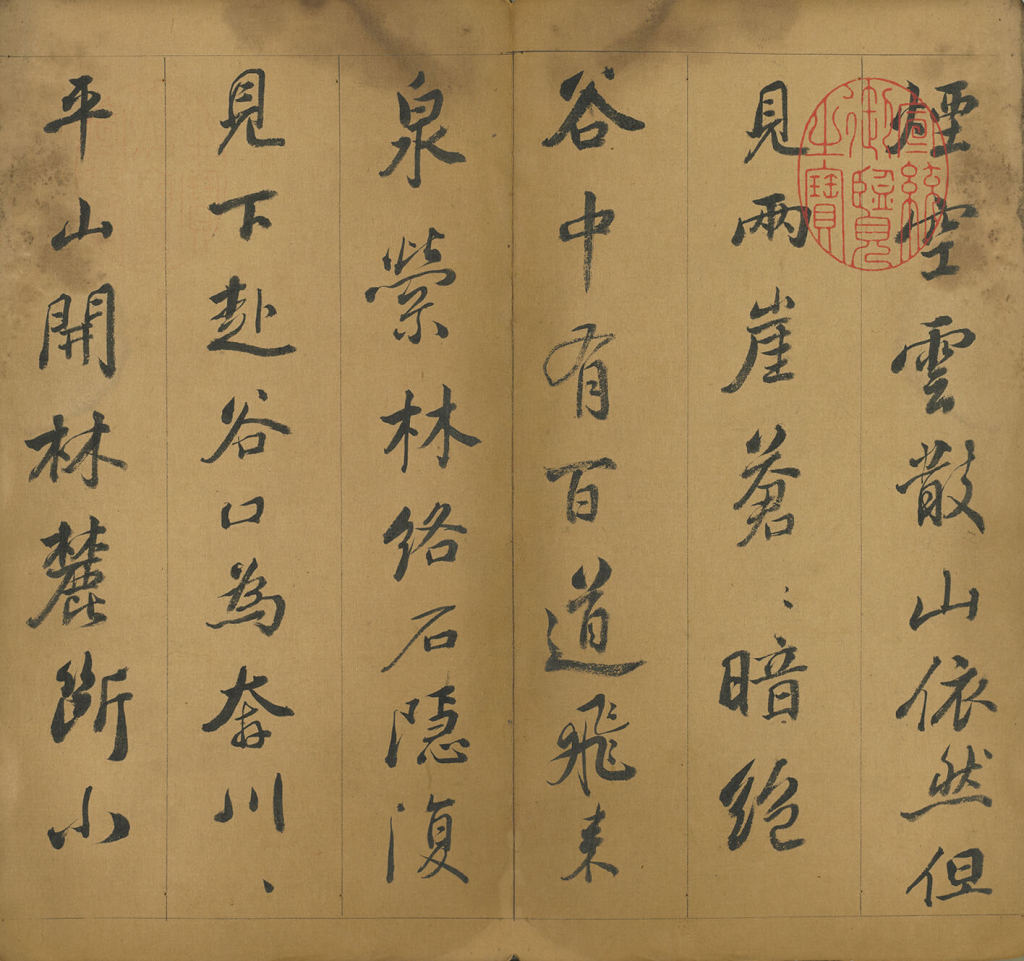 煙空雲散山依然但
見兩崖蒼〻暗絕
谷中有百道飛来
泉縈林絡石隱復
見下赴谷口為奔川〻
平山開林麓斷小
宣統御覽之寶